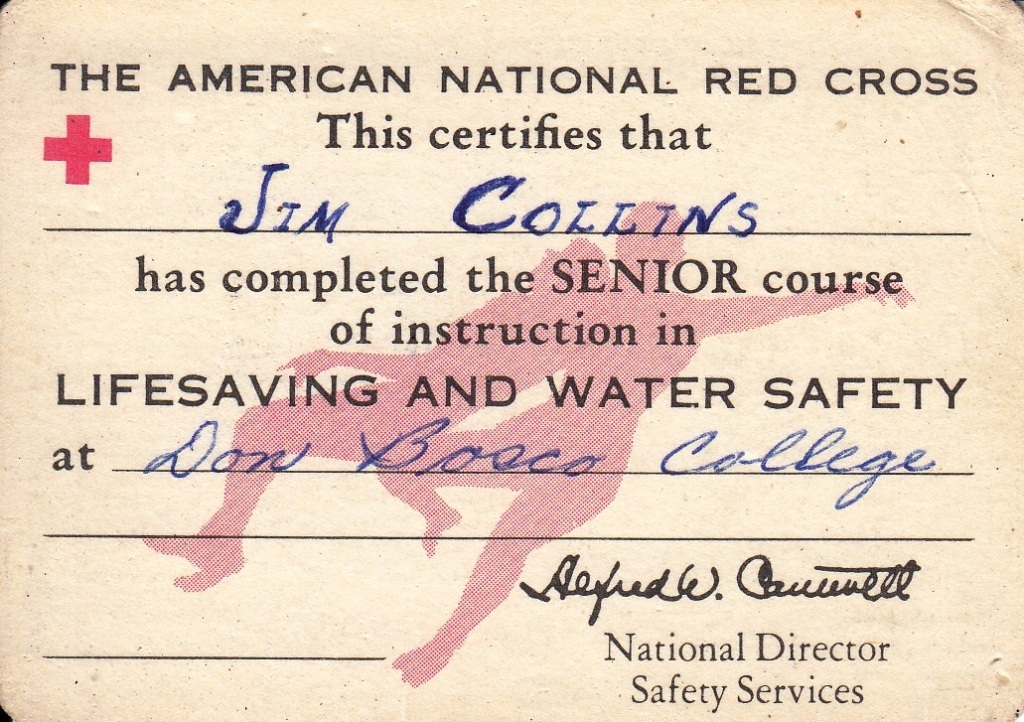 THE AMERICAN NATIONAL RED CROSS
This certifies that
JIM COLLINS
has completed the SENIOR course
of instruction in
LIFESAVING AND WATER SAFETY
at Don Bosco College
Alfred W. Cantwell
National Director
Safety Services